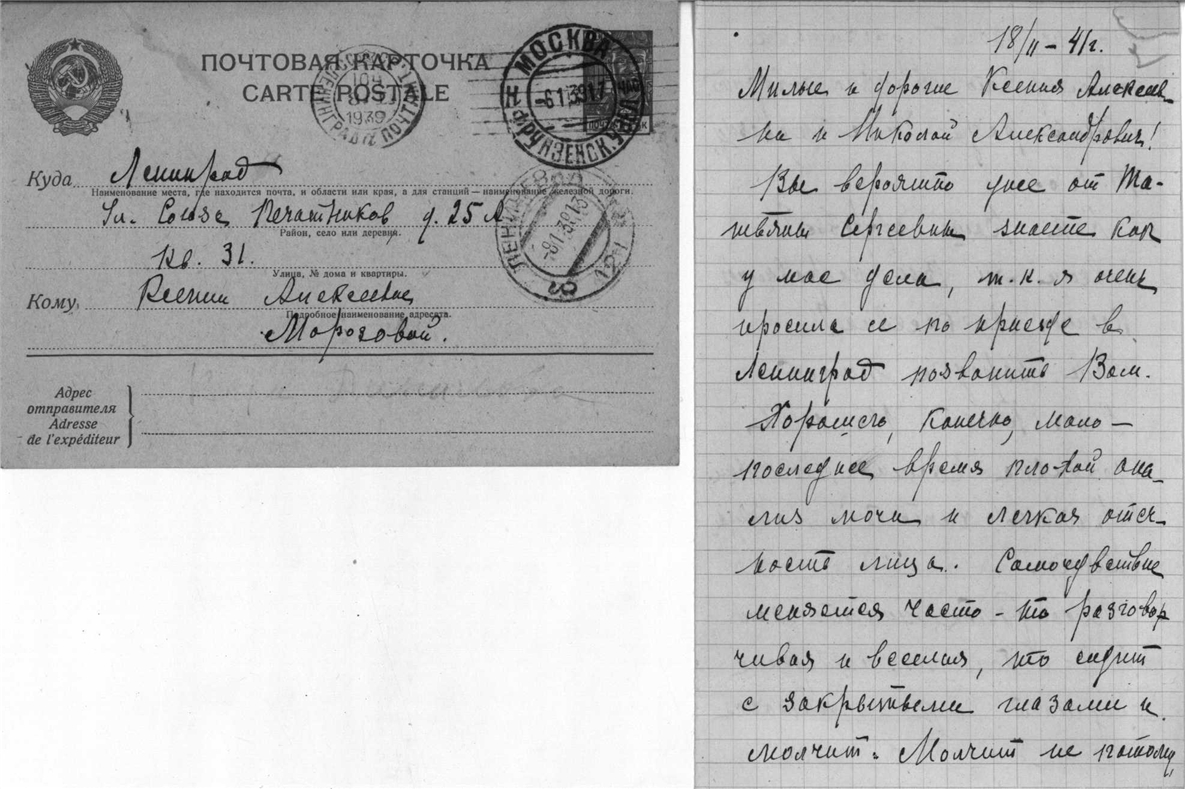 ПОЧТОВАЯ КАРТОЧКА
CARTE POSTALE
1939
МОСКВА
-6.1.39 17
Куда Ленинград
Наименование места, где находится почта, и области или края, а для станций — наименование железной дороги.
Ул. Союза Печатников, д. 25 А
Район, село или деревня.
кв. 31.
Улица, № дома и квартиры.
Кому Ксении Алексеевне
Подробное наименование адресата.
Морозовой.
Адрес
отправителя
Adresse
de l'expéditeur
18/II – 41 г.
Милые и дорогие Ксения Алексеев
на и Николай Александрович!
Вы вероятно уже от Та-
тьяны Сергеевны знаете как
у мас дела, т.к. я очень
просила ее по приезде в
Ленинград позвонить Вам.
Хорошего, конечно, мало –
последнее время плохой ана
лиз мочи и легкая отеч-
ность лица. Самочувствие
меняется часто – то разговор
чивая и веселая, то сидит
с закрытыми глазами и
молчит. Молчит не потому,